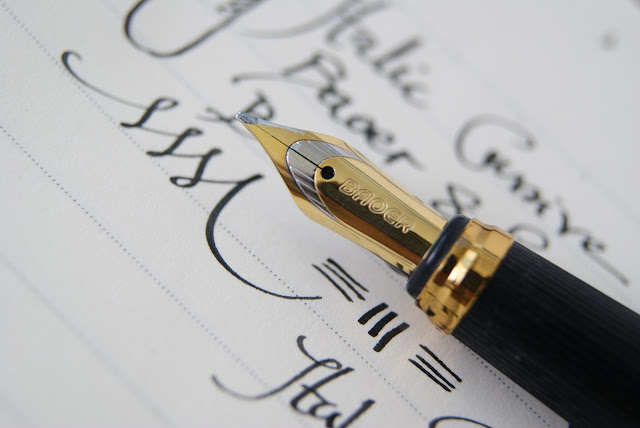 Italic Cursive
Baoer &
BAOER
Ital